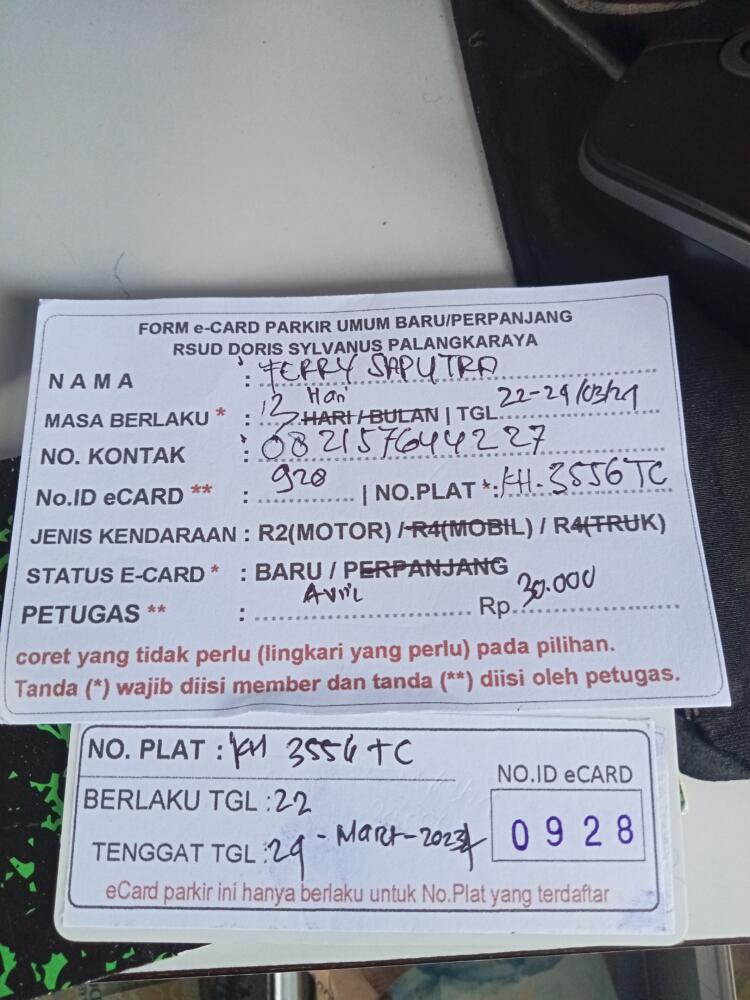 FORM e-CARD PARKIR UMUM BARU/PERPANJANG
RSUD DORIS SYLVANUS PALANGKARAYA
NAMA : FERRY SAPUTRA
Hari
MASA BERLAKU * : HARI / BULAN | TGL 22-29/03/24
NO. KONTAK : 082157644227
No.ID eCARD ** : 928 | NO.PLAT *: KH. 3556 TC
JENIS KENDARAAN : R2(MOTOR) / R4(MOBIL) / R4(TRUK)
STATUS E-CARD * : BARU / PERPANJANG
PETUGAS ** : Avril Rp. 30.000
coret yang tidak perlu (lingkari yang perlu) pada pilihan.
Tanda (*) wajib diisi member dan tanda (**) diisi oleh petugas.
NO. PLAT : KH 3556 TC
NO.ID eCARD
BERLAKU TGL : 22
0928
TENGGAT TGL : 29 - Mart - 2024
eCard parkir ini hanya berlaku untuk No.Plat yang terdaftar